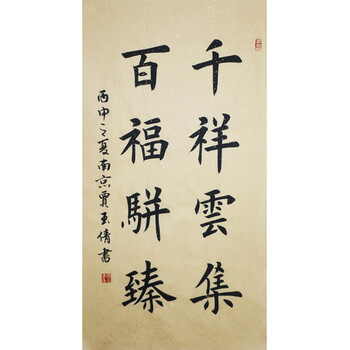 千祥雲集
百福駢臻
丙申之夏南京賈玉倩書